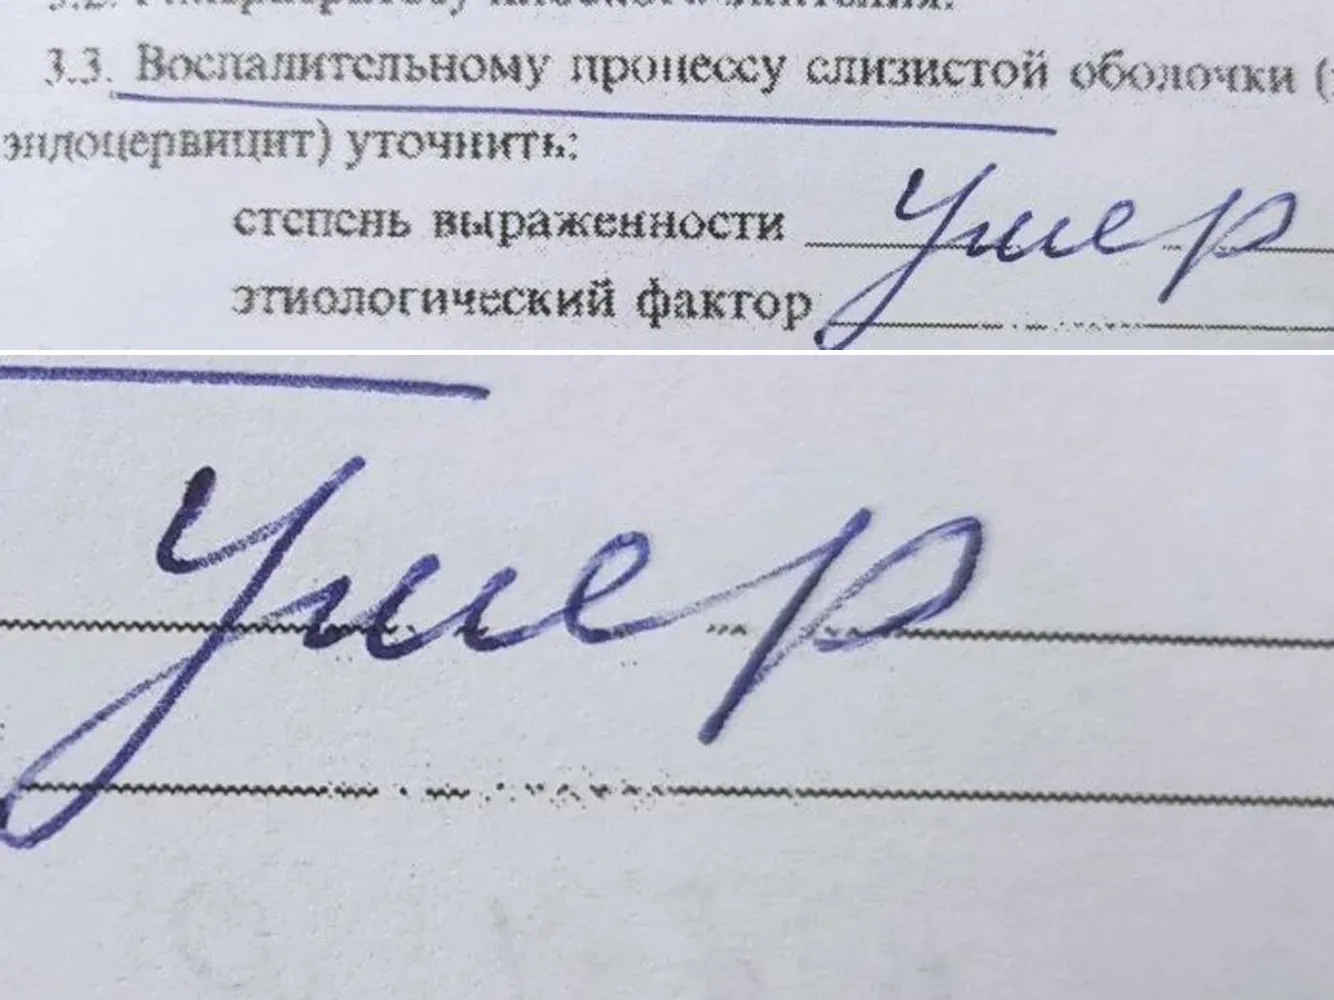 3.3. Воспалительному процессу слизистой оболочки (
эндоцервицит) уточнить:
степень выраженности Умер
этиологический фактор
Умер